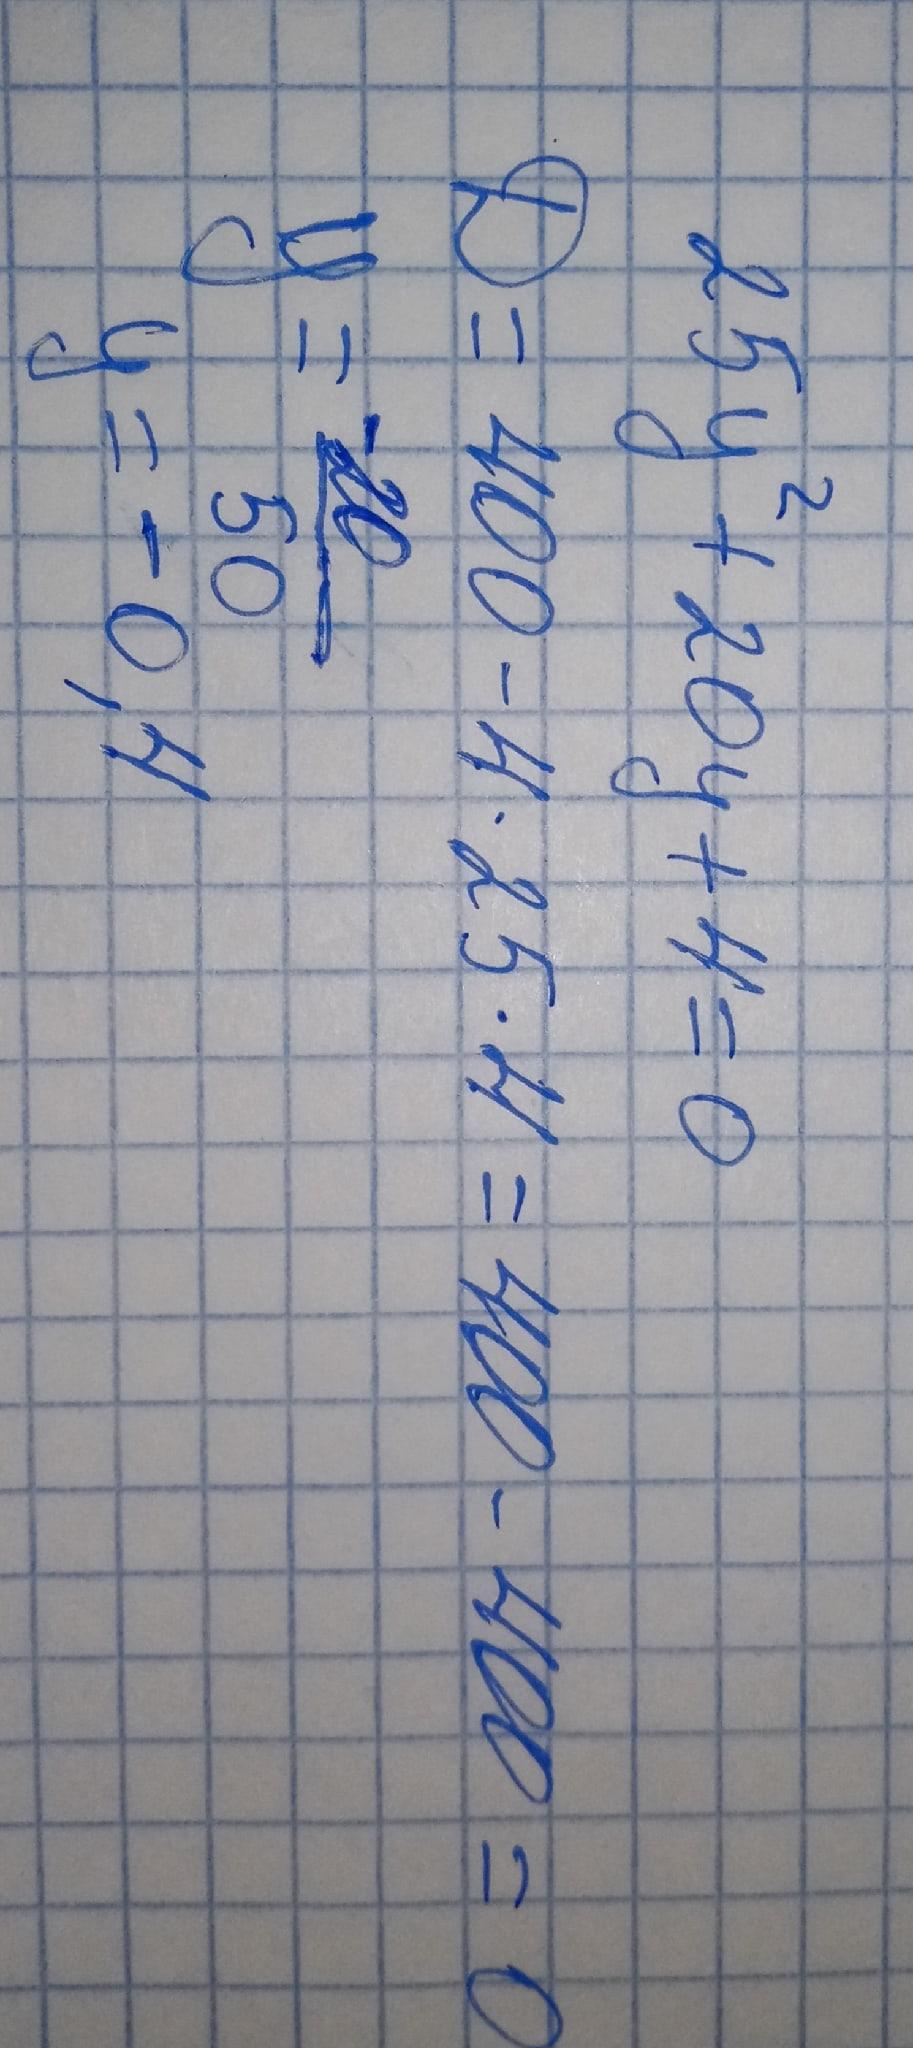 25y² + 20y + 4 = 0
D = 400 - 4 · 25 · 4 = 400 - 400 = 0
y = -20
50
y = -0,4